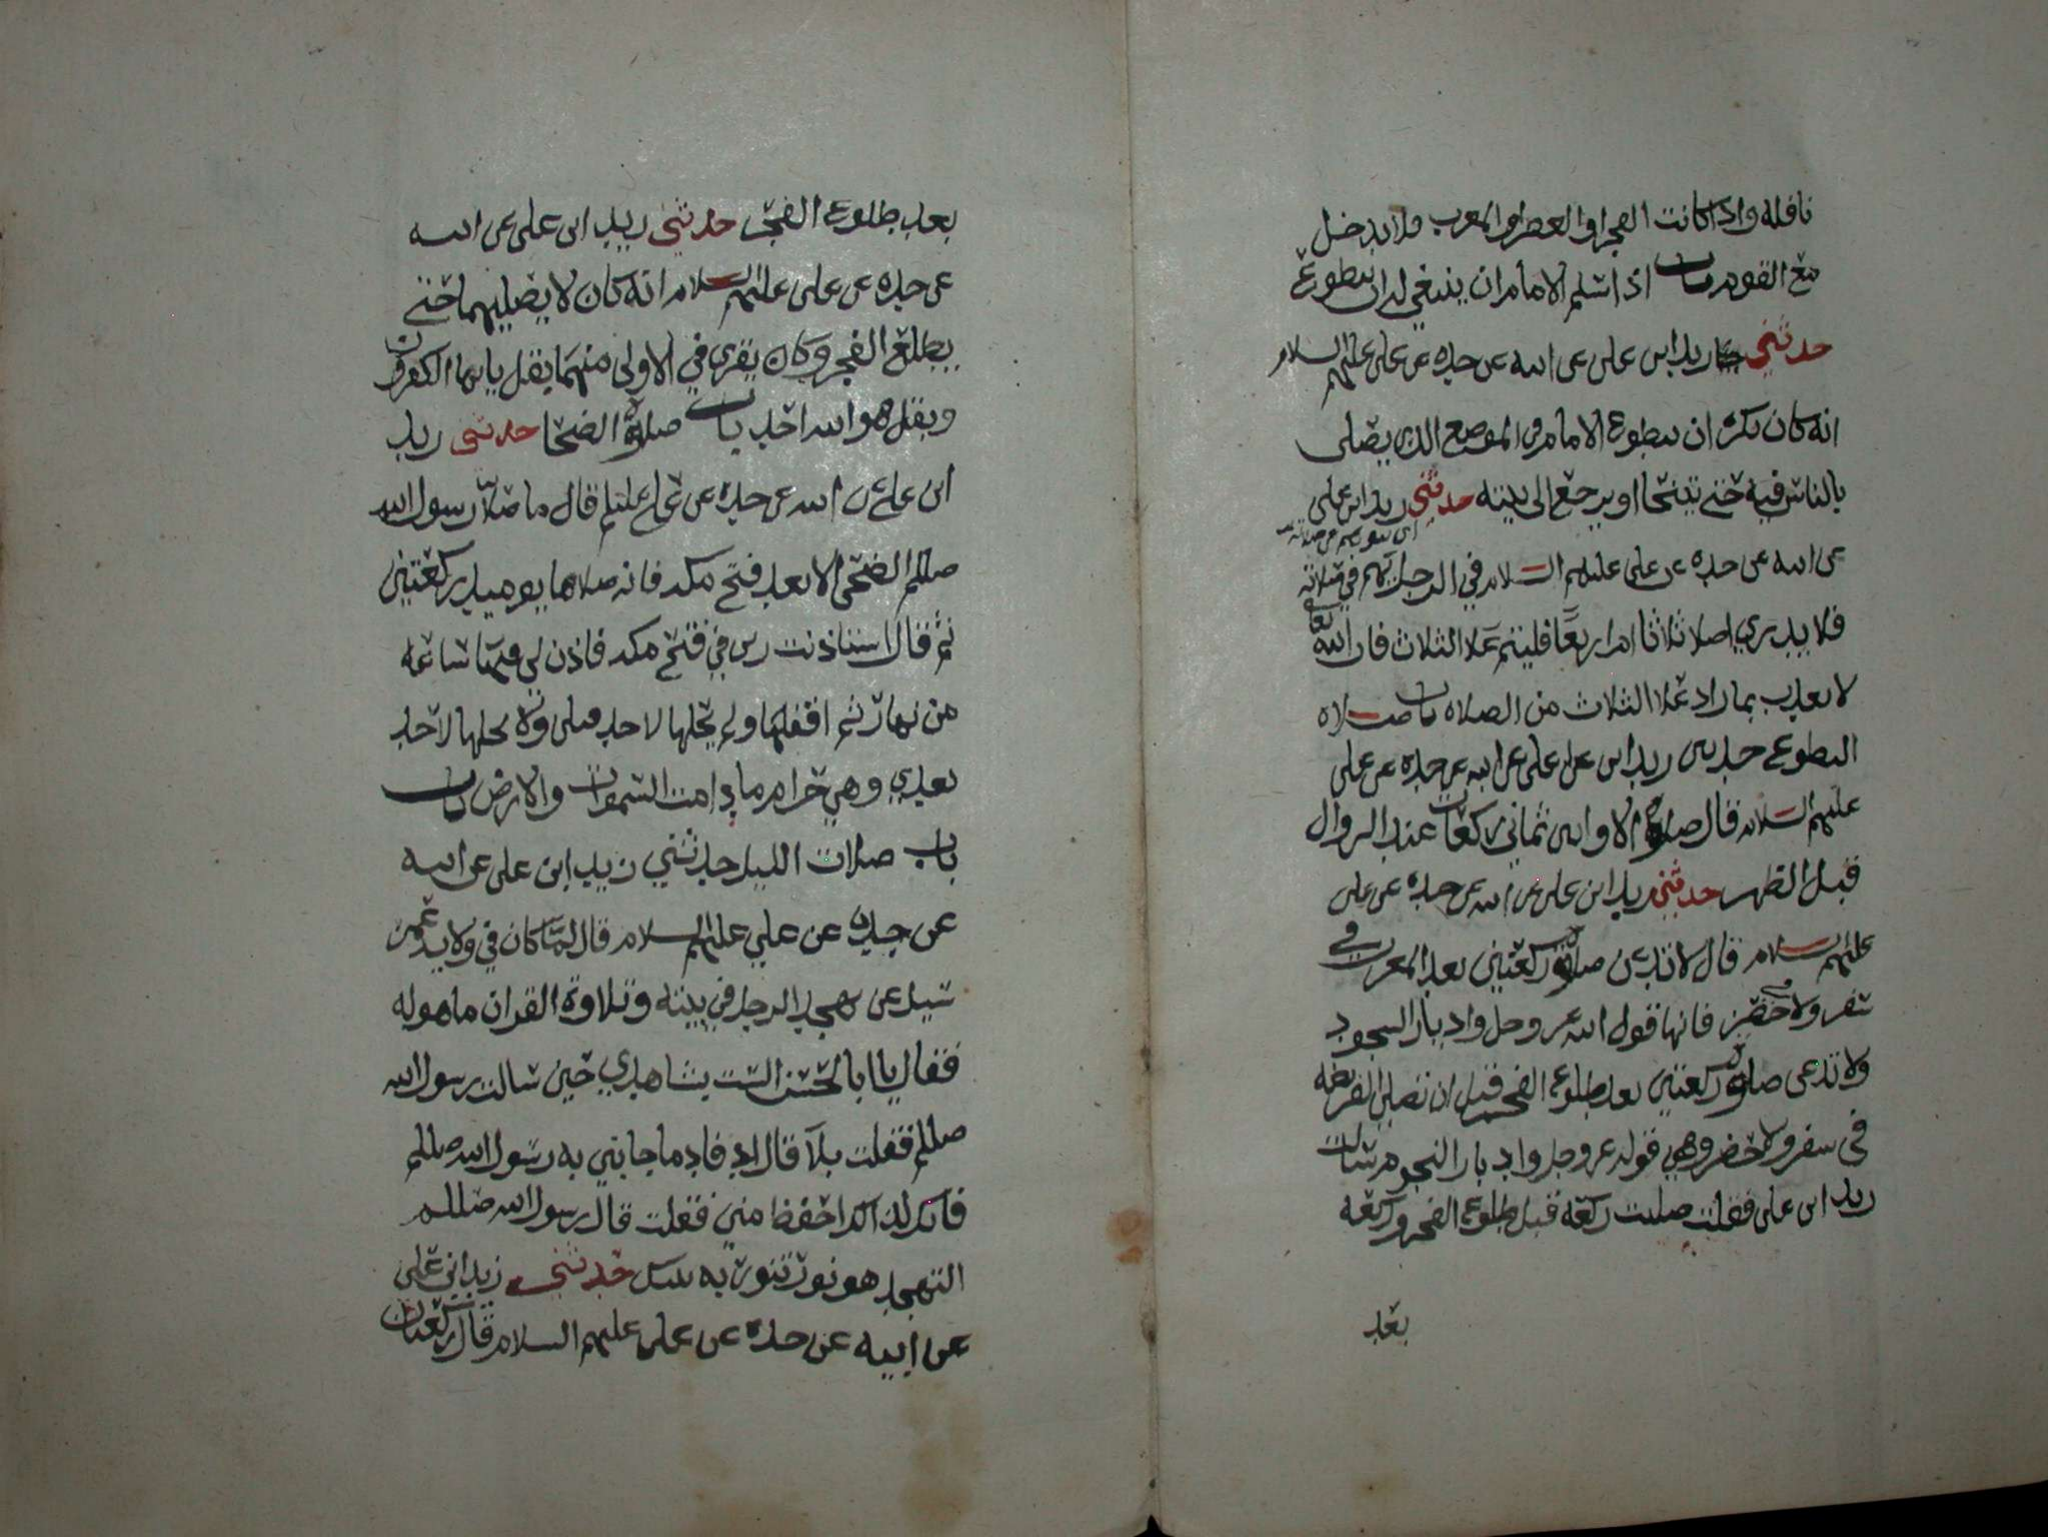 نافلة واذا كانت الفجر او العصر او المغرب فلا يدخل
مع القوم باب اذا سلم الامام ان ينبغي له ان يتطوع
حدثني زيد ابن علي عن ابيه عن جده عن علي عليهم السلام
انه كان يكره ان يتطوع الامام في الموضع الذي يصلي
بالناس فيه حتى يتنحا او يرجع الى بيته حدثني زيد ابن علي
عن ابيه عن جده عن علي عليهم السلام في الرجل يهم في صلاته
فلا يدري اصلا ثلاثا ام اربعا فليتم علا الثلاث فان الله تعا
لا يعذب بما زاد علا الثلاث من الصلاة باب صلاة
التطوع حدثني زيد ابن علي عن ابيه عن جده عن علي
عليهم السلام قال صلوة الاوابين ثماني ركعات عند الزوال
قبل الظهر حدثني زيد ابن علي عن ابيه عن جده عن علي
عليهم السلام قال لا تدعن صلوة ركعتين بعد المغرب في
سفر ولا حضر فانها قول الله عز وجل وادبار السجود
ولا تدعن صلوة ركعتين بعد طلوع الفجر قبل ان تصلي الفريضة
في سفر ولا حضر وهي قوله عز وجل وادبار النجوم سالت
زيد ابن علي فقلت صليت ركعة قبل طلوع الفجر وركعة
بعد
بعد طلوع الفجر حدثني زيد ابن علي عن ابيه
عن جده عن علي عليهم السلام انه كان لا يصليهما حتى
يطلع الفجر وكان يقرى في الاولى منهما بقل يا يها الكفرون
وبقل هو الله احد باب صلوة الضحا حدثني زيد
ابن علي عن ابيه عن جده عن علي عليلم قال ما صلا رسول الله
صللم الضحى الا بعد فتح مكه فانه صلاهما يوميذ ركعتين
ثم قال استاذنت ربي في فتح مكه فاذن لي فيها ساعة
من نهار ثم اقفلها ولم يحلها لاحد قبلي ولا يحلها لاحد
بعدي وهي حرام ما دامت السموات والارض باب
باب صلات الليل حدثني زيد ابن علي عن ابيه
عن جده عن علي عليهم السلام قال لما كان في ولاية عمر
سيل عن تهجد الرجل في بيته وتلاوة القران ما هو له
فقال يا ابا الحسن الست بشاهدي حين سالت رسول الله
صللم فقلت بلا قال اد فاد ما جابني به رسول الله صللم
فانك لذاك احفظ مني فقلت قال رسول الله صللم
التهجد هو نور تنور به بيتك حدثني زيد ابن علي
عن ابيه عن جده عن علي عليهم السلام قال ركعتان